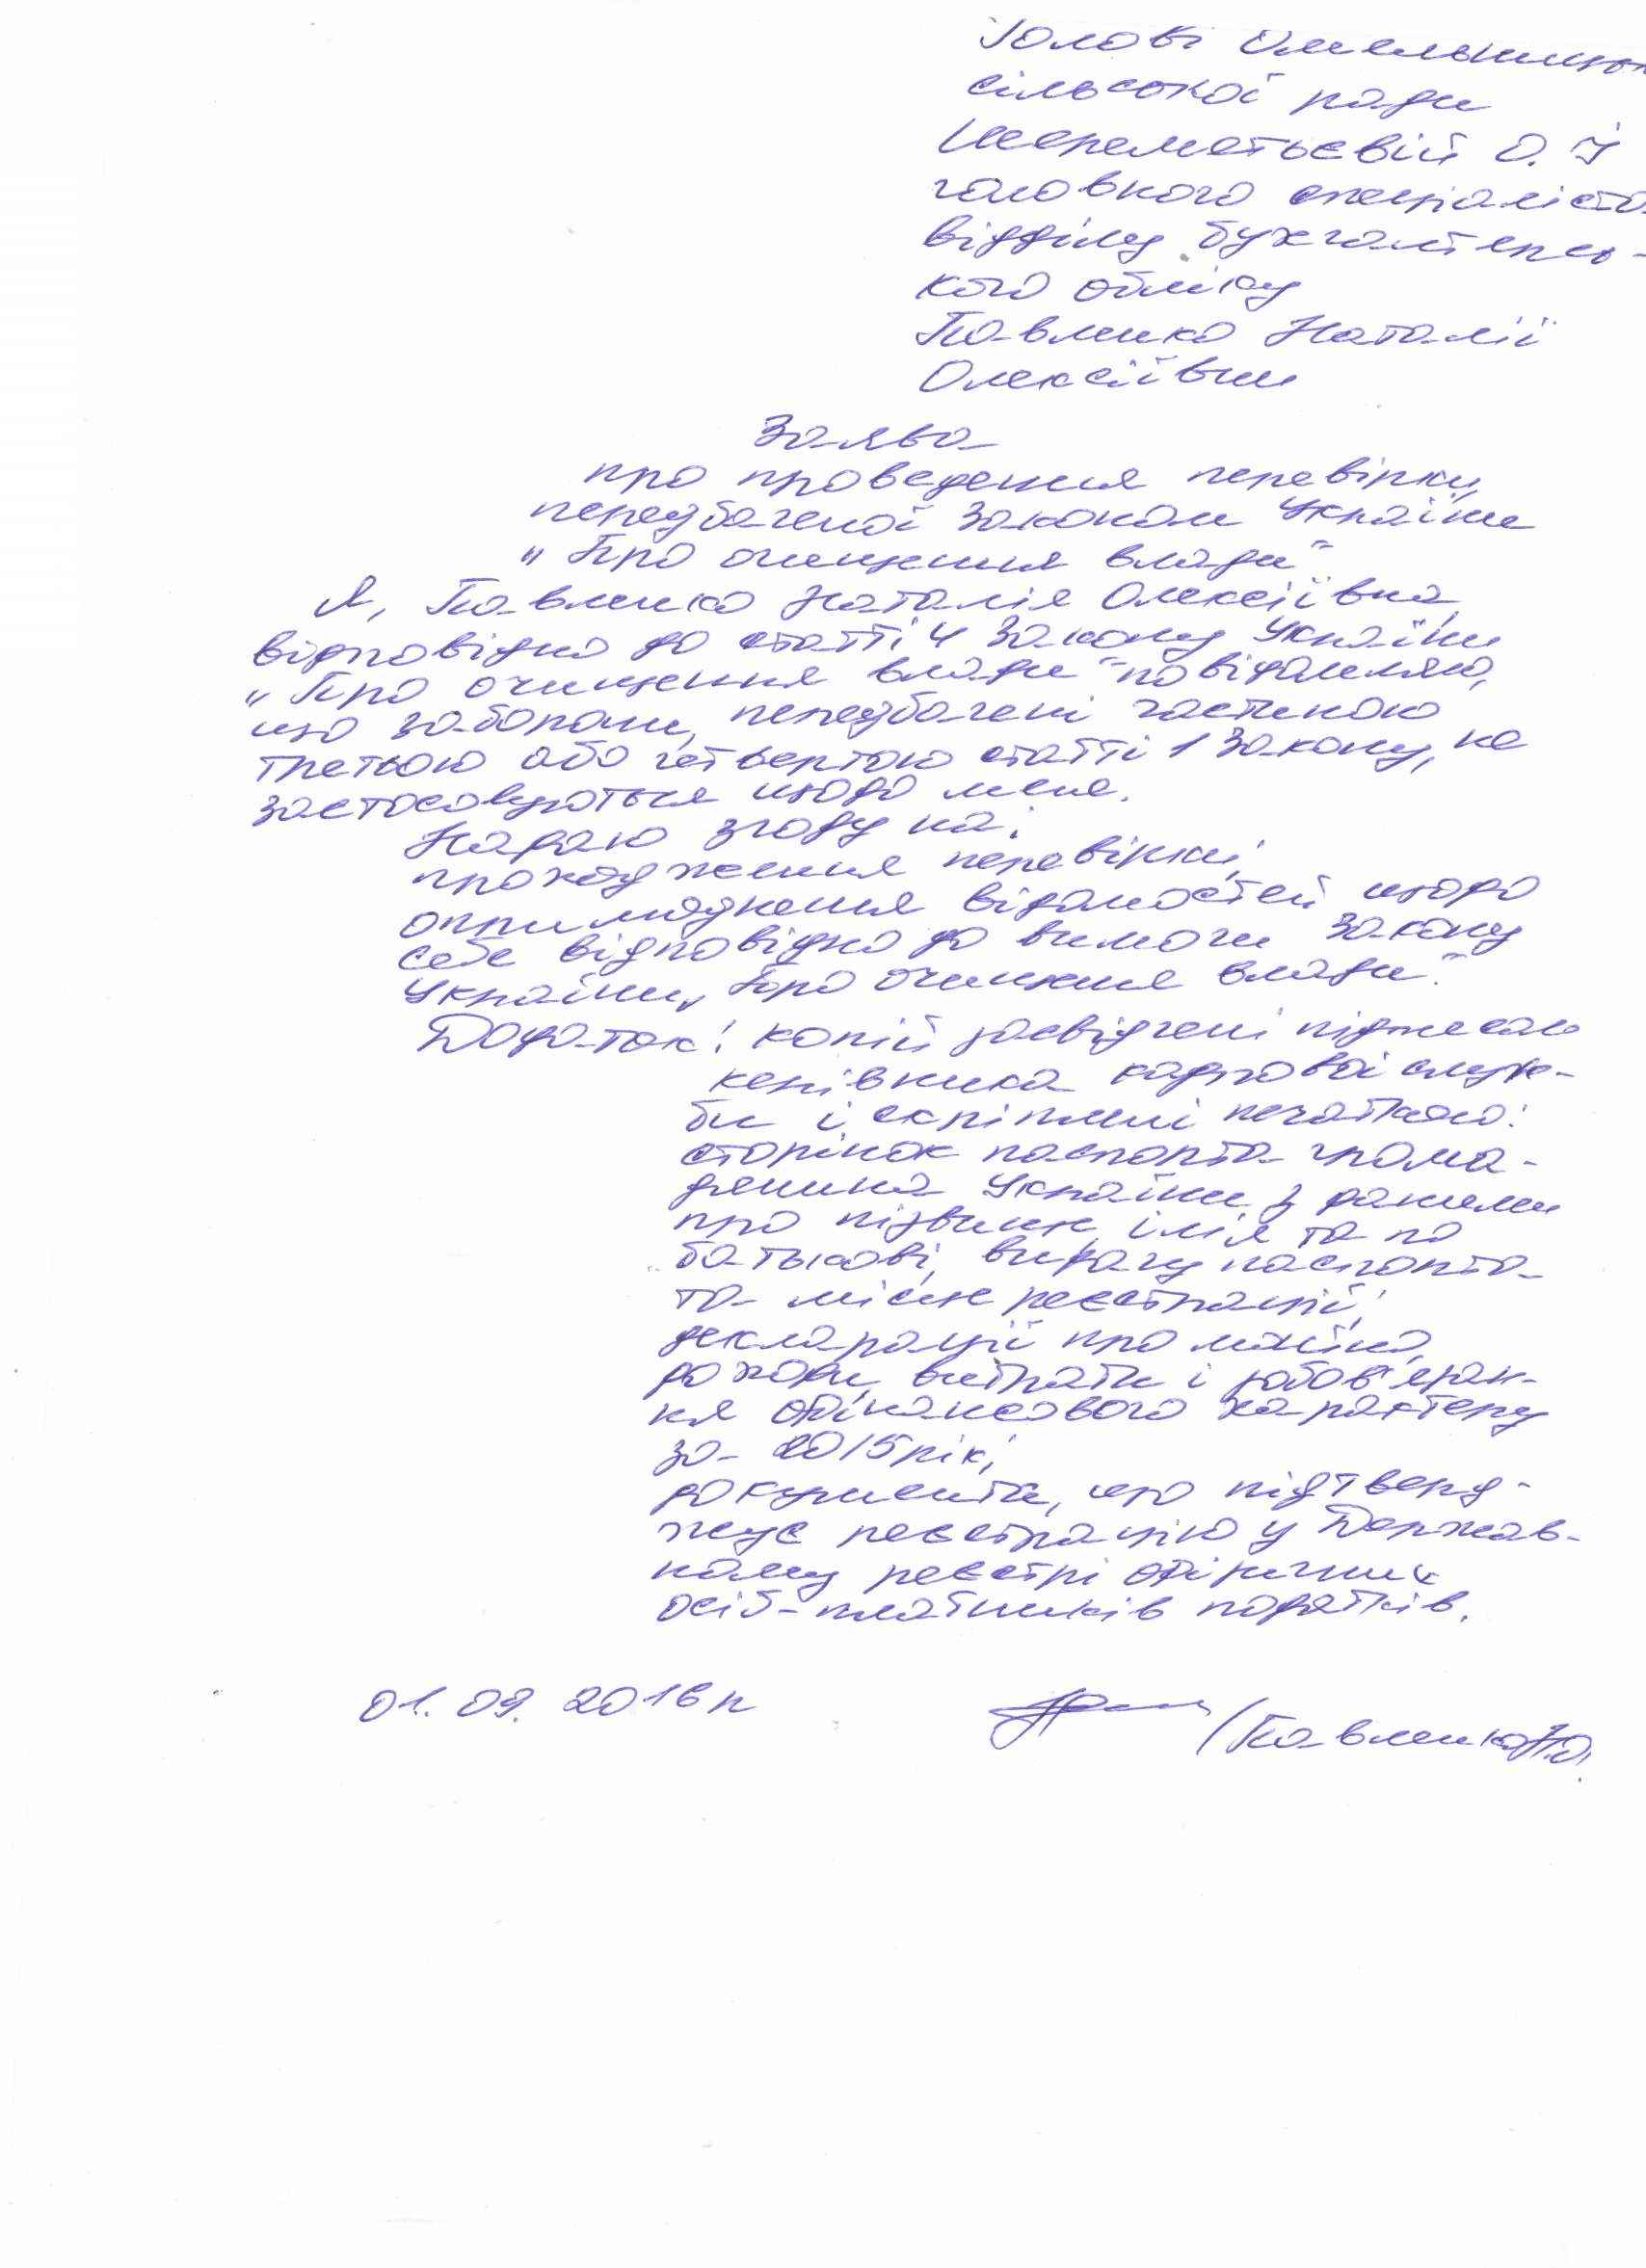 Голові Омельницьк
сільської ради
Шереметьєвій О. І
головного спеціаліста
відділу бухгалтерсь-
кого обліку
Павленко Наталії
Олексіївни
Заява
про проведення перевірки,
передбаченої Законом України
„Про очищення влади"
Я, Павленко Наталія Олексіївна,
відповідно до статті 4 Закону України
„Про очищення влади" повідомляю,
що заборони, передбачені частиною
третьою або четвертою статті 1 Закону, не
застосовуються щодо мене.
Надаю згоду на:
проходження перевірки;
оприлюднення відомостей щодо
себе відповідно до вимоги Закону
України „Про очищення влади".
Додаток: копій засвідчені підписом
керівника кадрової служ-
би і скріплені печаткою:
сторінок паспорта грома-
дянина України з даними
про прізвище, ім'я та по
батькові, видачу паспорта
та місце реєстрації;
декларації про майно,
доходи, витрати і зобов'язан-
ня фінансового характеру
за 2015 рік;
документа, що підтверд-
жує реєстрацію у Держав-
ному реєстрі фізичних
осіб-платників податків.
01. 09. 2016 р
/Павленко Н.О.